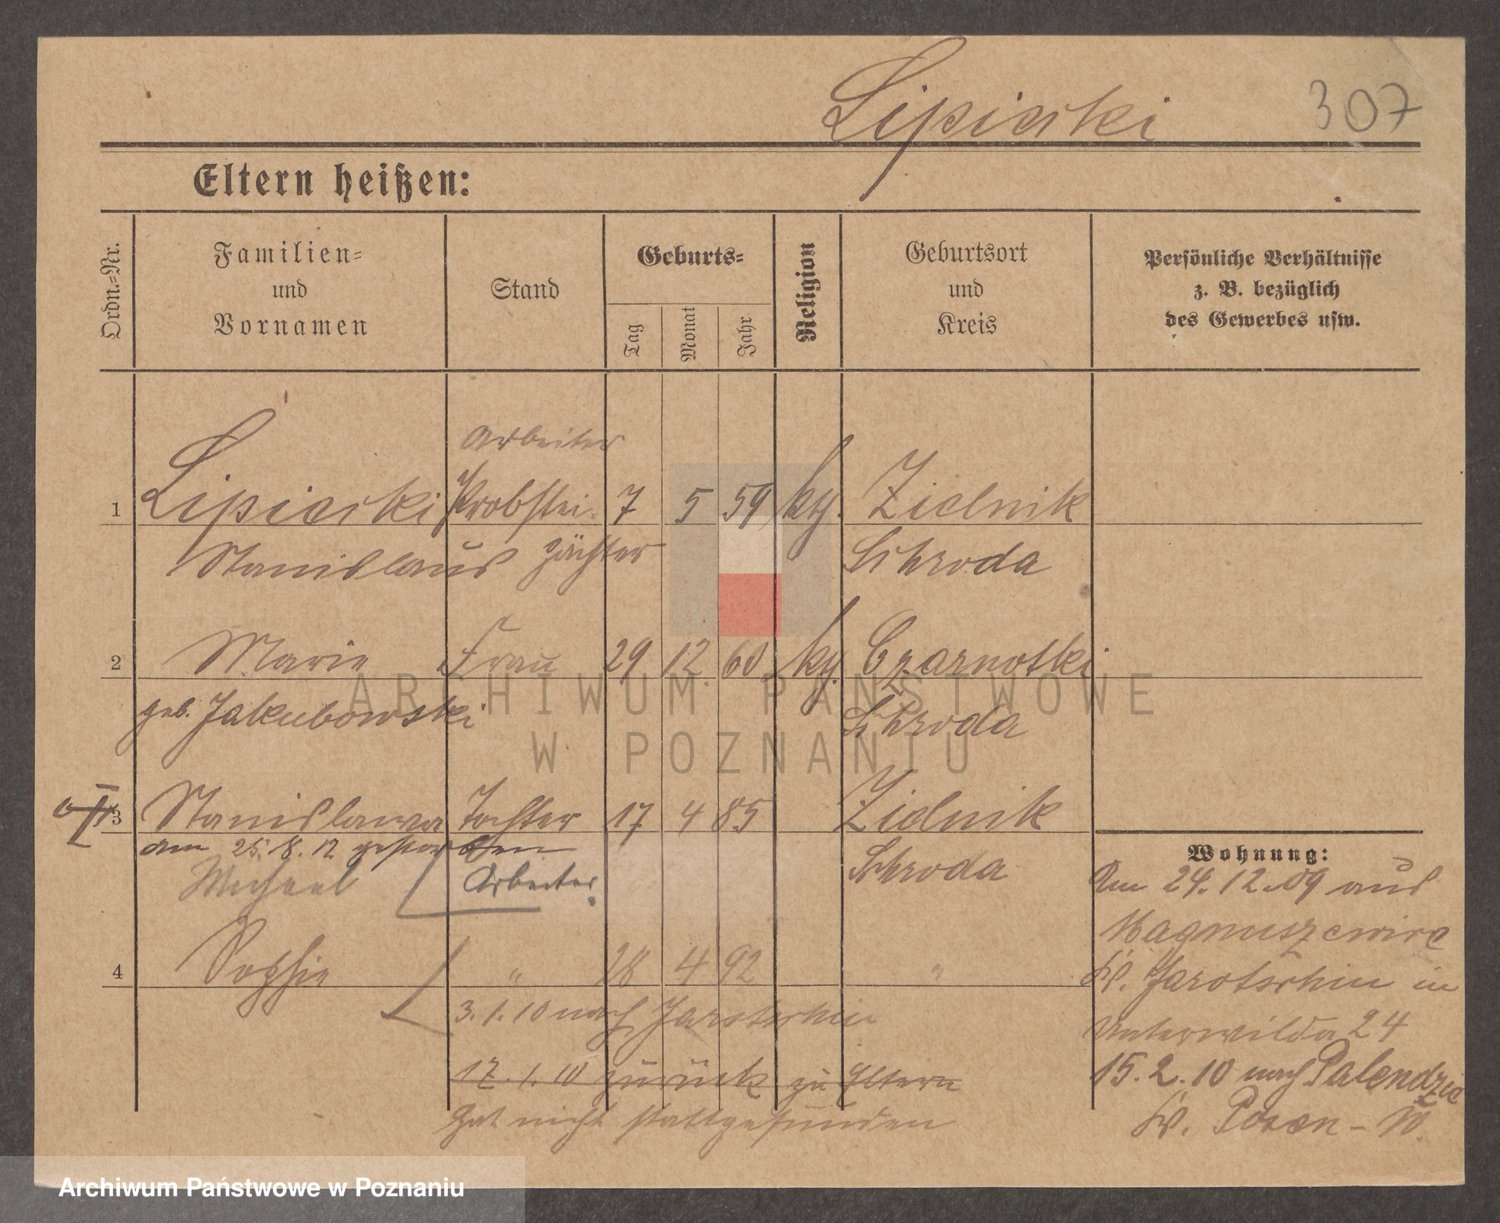 Lipiarski 307
Eltern heißen:
Ordn.-Nr.
Familien-
und
Vornamen
Stand
Geburts-
Tag
Monat
Jahr
Religion
Geburtsort
und
Kreis
Persönliche Verhältnisse
z. B. bezüglich
des Gewerbes usw.
Arbeiter
1 Lipiarski Probstei- 7 5 59 kg. Zielnik
Stanislaus pächter Schroda
2 Marie Frau 29 12 60 kg. Czarnotki
geb. Jakubowski Schroda
3 Stanislawa Tochter 17 4 85 Zielnik
am 25.8.12 gestorben Schroda
Michael Arbeiter
4 Sophie " 28 4 92 "
3.1.10 nach Jarotschin
17.1.10 zurück zu Eltern
hat nicht stattgefunden
Wohnung:
Am 24.12.09 aus
Magnuszewice
Kr. Jarotschin in
Unterwilda 24
15.2.10 nach Palendzie
Kr. Posen-W.
ARCHIWUM PAŃSTWOWE
W POZNANIU
Archiwum Państwowe w Poznaniu